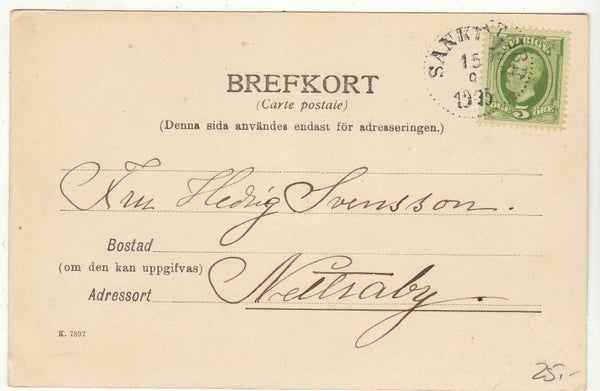 SVERIGE
15
9
5 ÖRE
BREFKORT
(Carte postale)
(Denna sida användes endast för adresseringen.)
Fru Hedvig Svensson.
Bostad
(om den kan uppgifvas)
Adressort Nettraby.
K. 7892
25.-